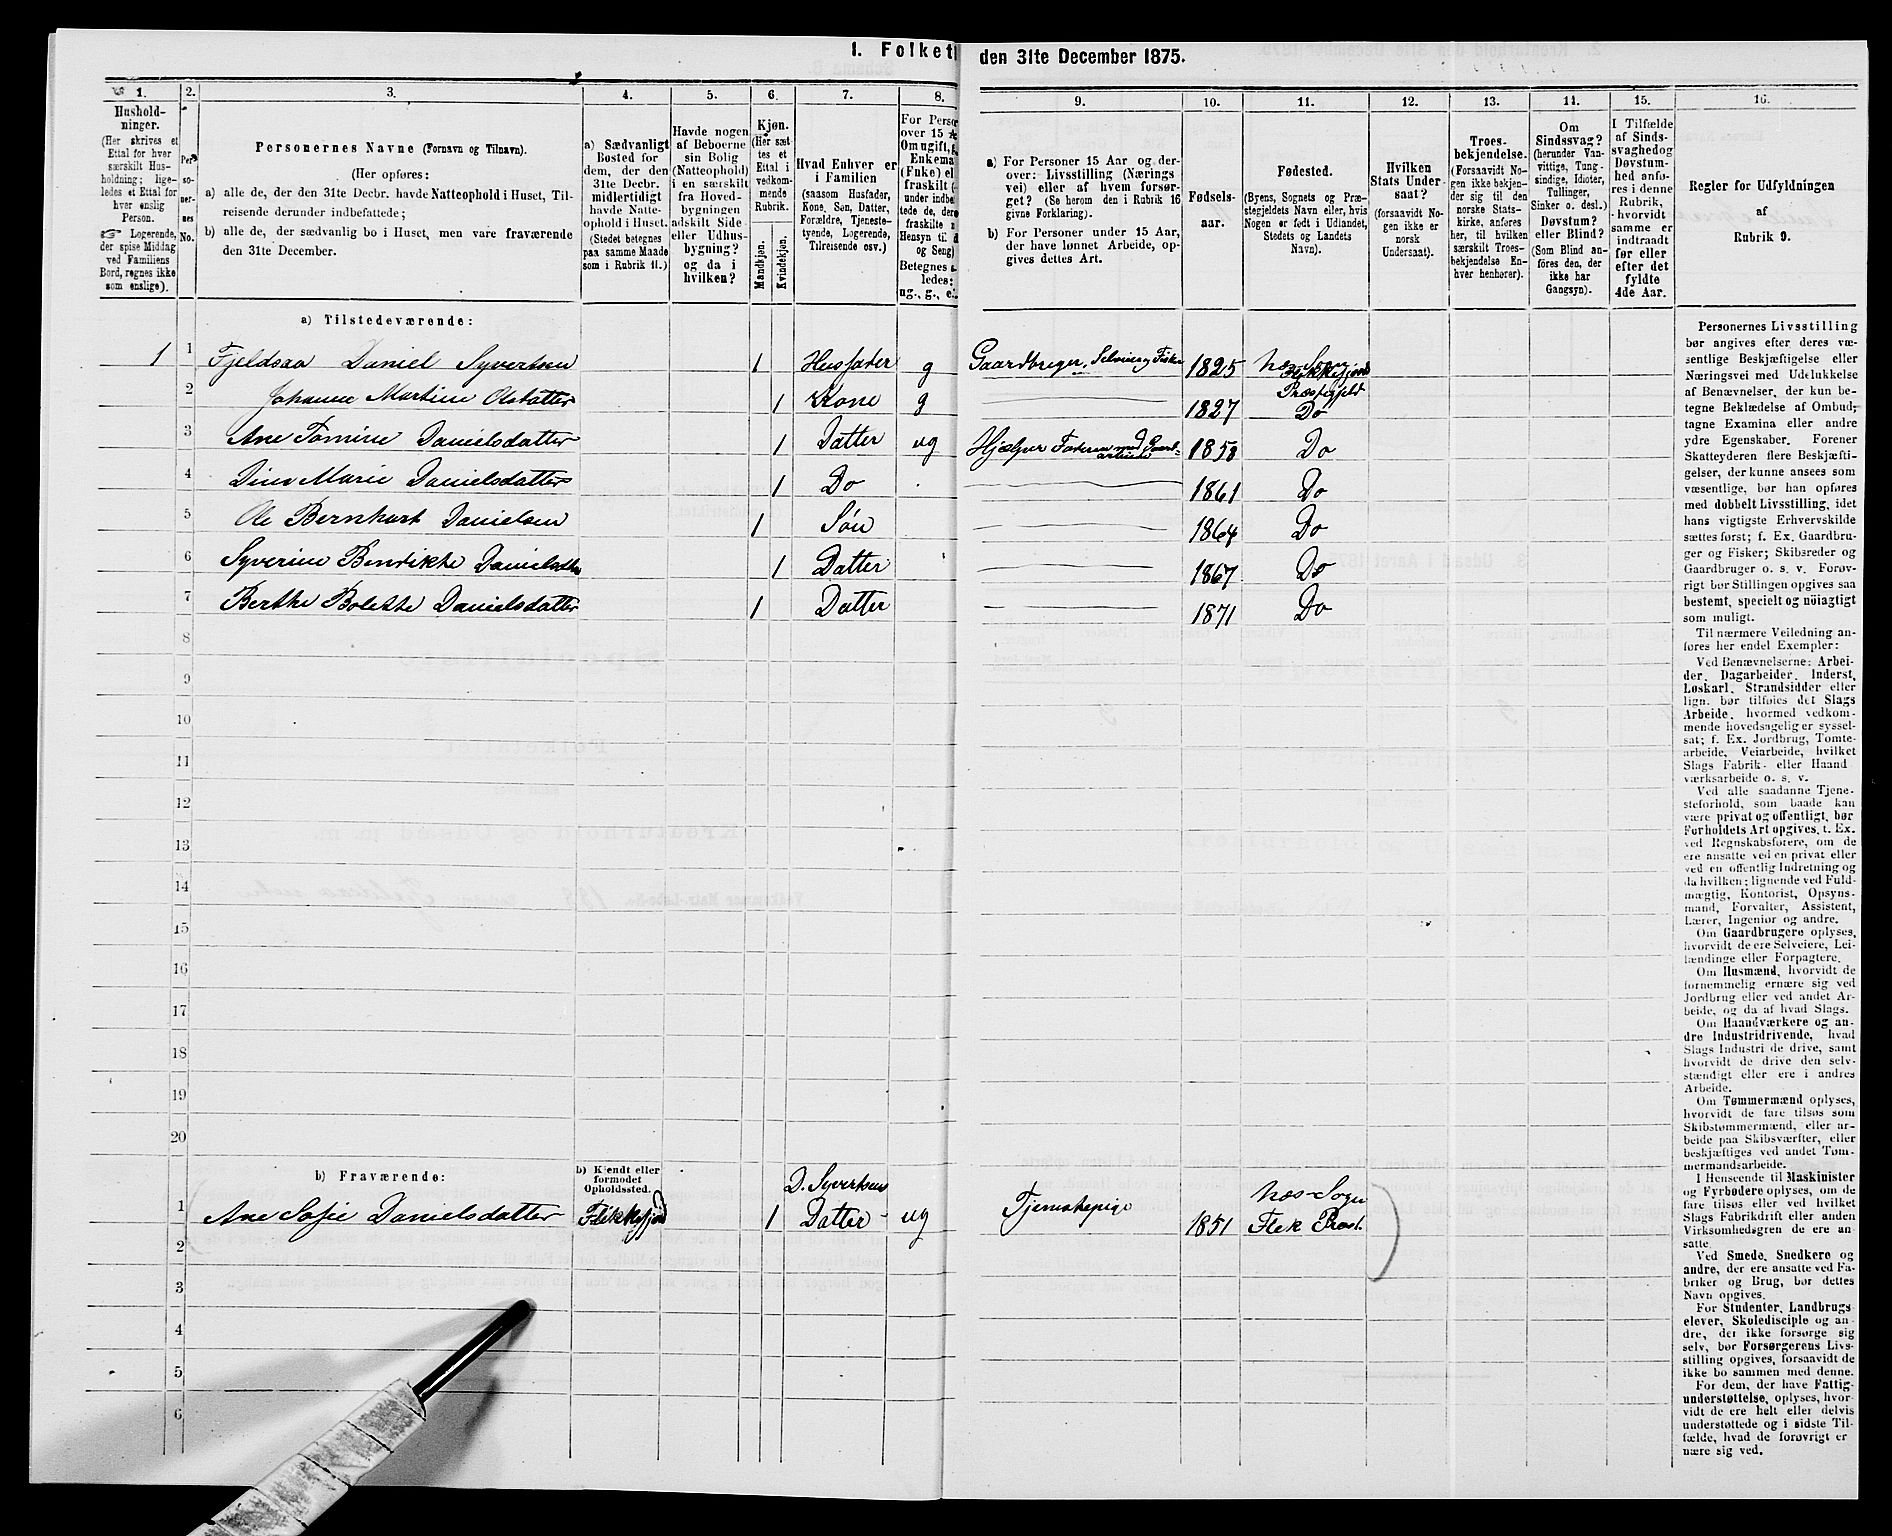 1. Folket
den 31te December 1875.
1.
Hushold-
ninger.
(Her skrives et
Ettal for hver
særskilt Hus-
holdning; lige-
ledes et Ettal for
hver enslig
Person.
☞ Logerende,
der spise Middag
ved Familiens
Bord, regnes ikke
som enslige).
2.
Per-
so-
ner-
nes
No.
3.
Personernes Navne (Fornavn og Tilnavn).
(Her opføres:
a) alle de, der den 31te Decbr. havde Natteophold i Huset, Til-
reisende derunder indbefattede;
b) alle de, der sædvanlig bo i Huset, men vare fraværende
den 31te December.
4.
a) Sædvanligt
Bosted for
dem, der den
31te Decbr.
midlertidigt
havde Natte-
ophold i Huset.
(Stedet betegnes
paa samme Maade
som i Rubrik 11.)
5.
Havde nogen
af Beboerne
sin Bolig
(Natteophold)
i en særskilt
fra Hoved-
bygningen
adskilt Side-
eller Udhus-
bygning?
og da i
hvilken?
6.
Kjøn.
(Her sæt-
tes et
Ettal i
vedkom-
mende
Rubrik.
Mandkjøn.
Kvindekjøn.
7.
Hvad Enhver er
i Familien
(saasom Husfader,
Kone, Søn, Datter,
Forældre, Tjeneste-
tyende, Logerende,
Tilreisende osv.)
8.
For Perso
over 15 A
Om ugift, g
Enkema
(Fuke) el
fraskilt (
under indbe
tede de, der
fraskilte
Hensyn til
og Seng)
Betegnes
ledes:
ug., g., e.
9.
a) For Personer 15 Aar og der-
over: Livsstilling (Nærings
vei) eller af hvem forsør-
get? (Se herom den i Rubrik 16
givne Forklaring).
b) For Personer under 15 Aar,
der have lønnet Arbeide, op-
gives dettes Art.
10.
Fødsels-
aar.
11.
Fødested.
(Byens, Sognets og Præ-
stegjeldets Navn eller, hvis
Nogen er født i Udlandet,
Stedets og Landets
Navn).
12.
Hvilken
Stats Under-
saat?
(forsaavidt No-
gen ikke er
norsk
Undersaat).
13.
Troes-
bekjendelse.
(Forsaavidt No-
gen ikke bekjen-
der sig til den
norske Stats-
kirke, anføres
her, til hvilken
særskilt Troes-
bekjendelse En-
hver henhører).
14.
Om
Sindssvag?
(herunder Van-
vittige, Tung-
sindige, Idioter,
Tullinger,
Sinker o. desl.)
Døvstum?
eller Blind?
(Som Blind an-
føres den, der
ikke har
Gangsyn).
15.
I Tilfælde
af Sinds-
svaghed og
Døvstum-
hed anfø-
res i denne
Rubrik,
hvorvidt
samme er
indtraadt
før eller
efter det
fyldte
4de Aar.
16.
Regler for Udfyldningen
af
Rubrik 9.
a) Tilstedeværende:
1 1 Fjeldsaa Daniel Syvertsen 1 Husfader g Gaardbruger, Selveier og Fisker 1825 Næs Sogn Flekkefjord Præstegjeld
2 Johanne Martine Olsdatter 1 Kone g 1827 Do
3 Ane Tomine Danielsdatter 1 Datter ug Hjælper Faderen med Gaardarbeide 1858 Do
4 Dine Marie Danielsdatter 1 Do 1861 Do
5 Ole Bernhart Danielsen 1 Søn 1864 Do
6 Syverine Bendikte Danielsdtr 1 Datter 1867 Do
7 Berthe Bolette Danielsdatter 1 Datter 1871 Do
8
9
10
11
12
13
14
15
16
17
18
19
20
b) Fraværende:
b) Kjendt eller
formodet
Opholdssted.
1 Ane Sofie Danielsdatter Flekkefjord 1 D. Syvertsens Datter ug Tjenestepige 1851 Næs Sogn Flek Præst.
2
3
4
5
6
Personernes Livsstilling
bør angives efter deres væ-
sentlige Beskjæftigelse eller
Næringsvei med Udelukkelse
af Benævnelser, der kun be-
tegne Beklædelse af Ombud,
tagne Examina eller andre
ydre Egenskaber. Forener
Skatteyderen flere Beskjæfti-
gelser, der kunne ansees som
væsentlige, bør han opføres
med dobbelt Livsstilling, idet
hans vigtigste Erhvervskilde
sættes først; f. Ex. Gaardbru-
ger og Fisker; Skibsreder og
Gaardbruger o. s. v. Forøv-
rigt bør Stillingen opgives saa
bestemt, specielt og nöiagtigt
som muligt.
Til nærmere Veiledning an-
føres her endel Exempler:
Ved Benævnelserne: Arbei-
der, Dagarbeider, Inderst,
Løskarl, Strandsidder eller
lign. bør tilføies det Slags
Arbeide, hvormed vedkom-
mende hovedsagelig er syssel-
sat; f. Ex. Jordbrug, Tomte-
arbeide, Veiarbeide, hvilket
Slags Fabrik- eller Haand
værksarbeide o. s. v.
Ved alle saadanne Tjene-
steforhold, som baade kan
være privat og offentligt, bør
Forholdets Art opgives, t. Ex.
ved Regnskabsførere, om de
ere ansatte ved en privat eller
ved en offentlig Indretning og
da hvilken; lignende ved Fuld-
mægtig, Kontorist, Opsyns-
mand, Forvalter, Assistent,
Lærer, Ingeniør og andre.
Om Gaardbrugere oplyses,
hvorvidt de ere Selveiere, Lei-
lændinge eller Forpagtere.
Om Husmænd, hvorvidt de
fornemmelig ernære sig ved
Jordbrug eller ved andet Ar-
beide, og da af hvad Slags.
Om Haandværkere og an-
dre Industridrivende, hvad
Slags Industri de drive, samt
hvorvidt de drive den selv-
stændigt eller ere i andres
Arbeide.
Om Tømmermænd oplyses,
hvorvidt de fare tilsøs som
Skibstømmermænd, eller ar-
beide paa Skibsværfter, eller
beskjæftiges ved andet Tøm-
mermandsarbeide.
I Henseende til Maskinister
og Fyrbødere oplyses, om de
fare tilsøs eller ved hvilket
Slags Fabrikdrift eller anden
Virksomhedsgren de ere an-
satte.
Ved Smede, Snedkere og
andre, der ere ansatte ved Fa-
briker og Brug, bør dettes
Navn opgives.
For Studenter, Landbrugs-
elever, Skoledisciple og an-
dre, der ikke forsørge sig
selv, bør Forsørgerens Livs-
stilling opgives, forsaavidt de
ikke bo sammen med denne.
For dem, der have Fattig-
understøttelse, oplyses, hvor-
vidt de ere helt eller delvis
understøttede og i sidste Til-
fælde, hvad de forøvrigt er
nære sig ved.